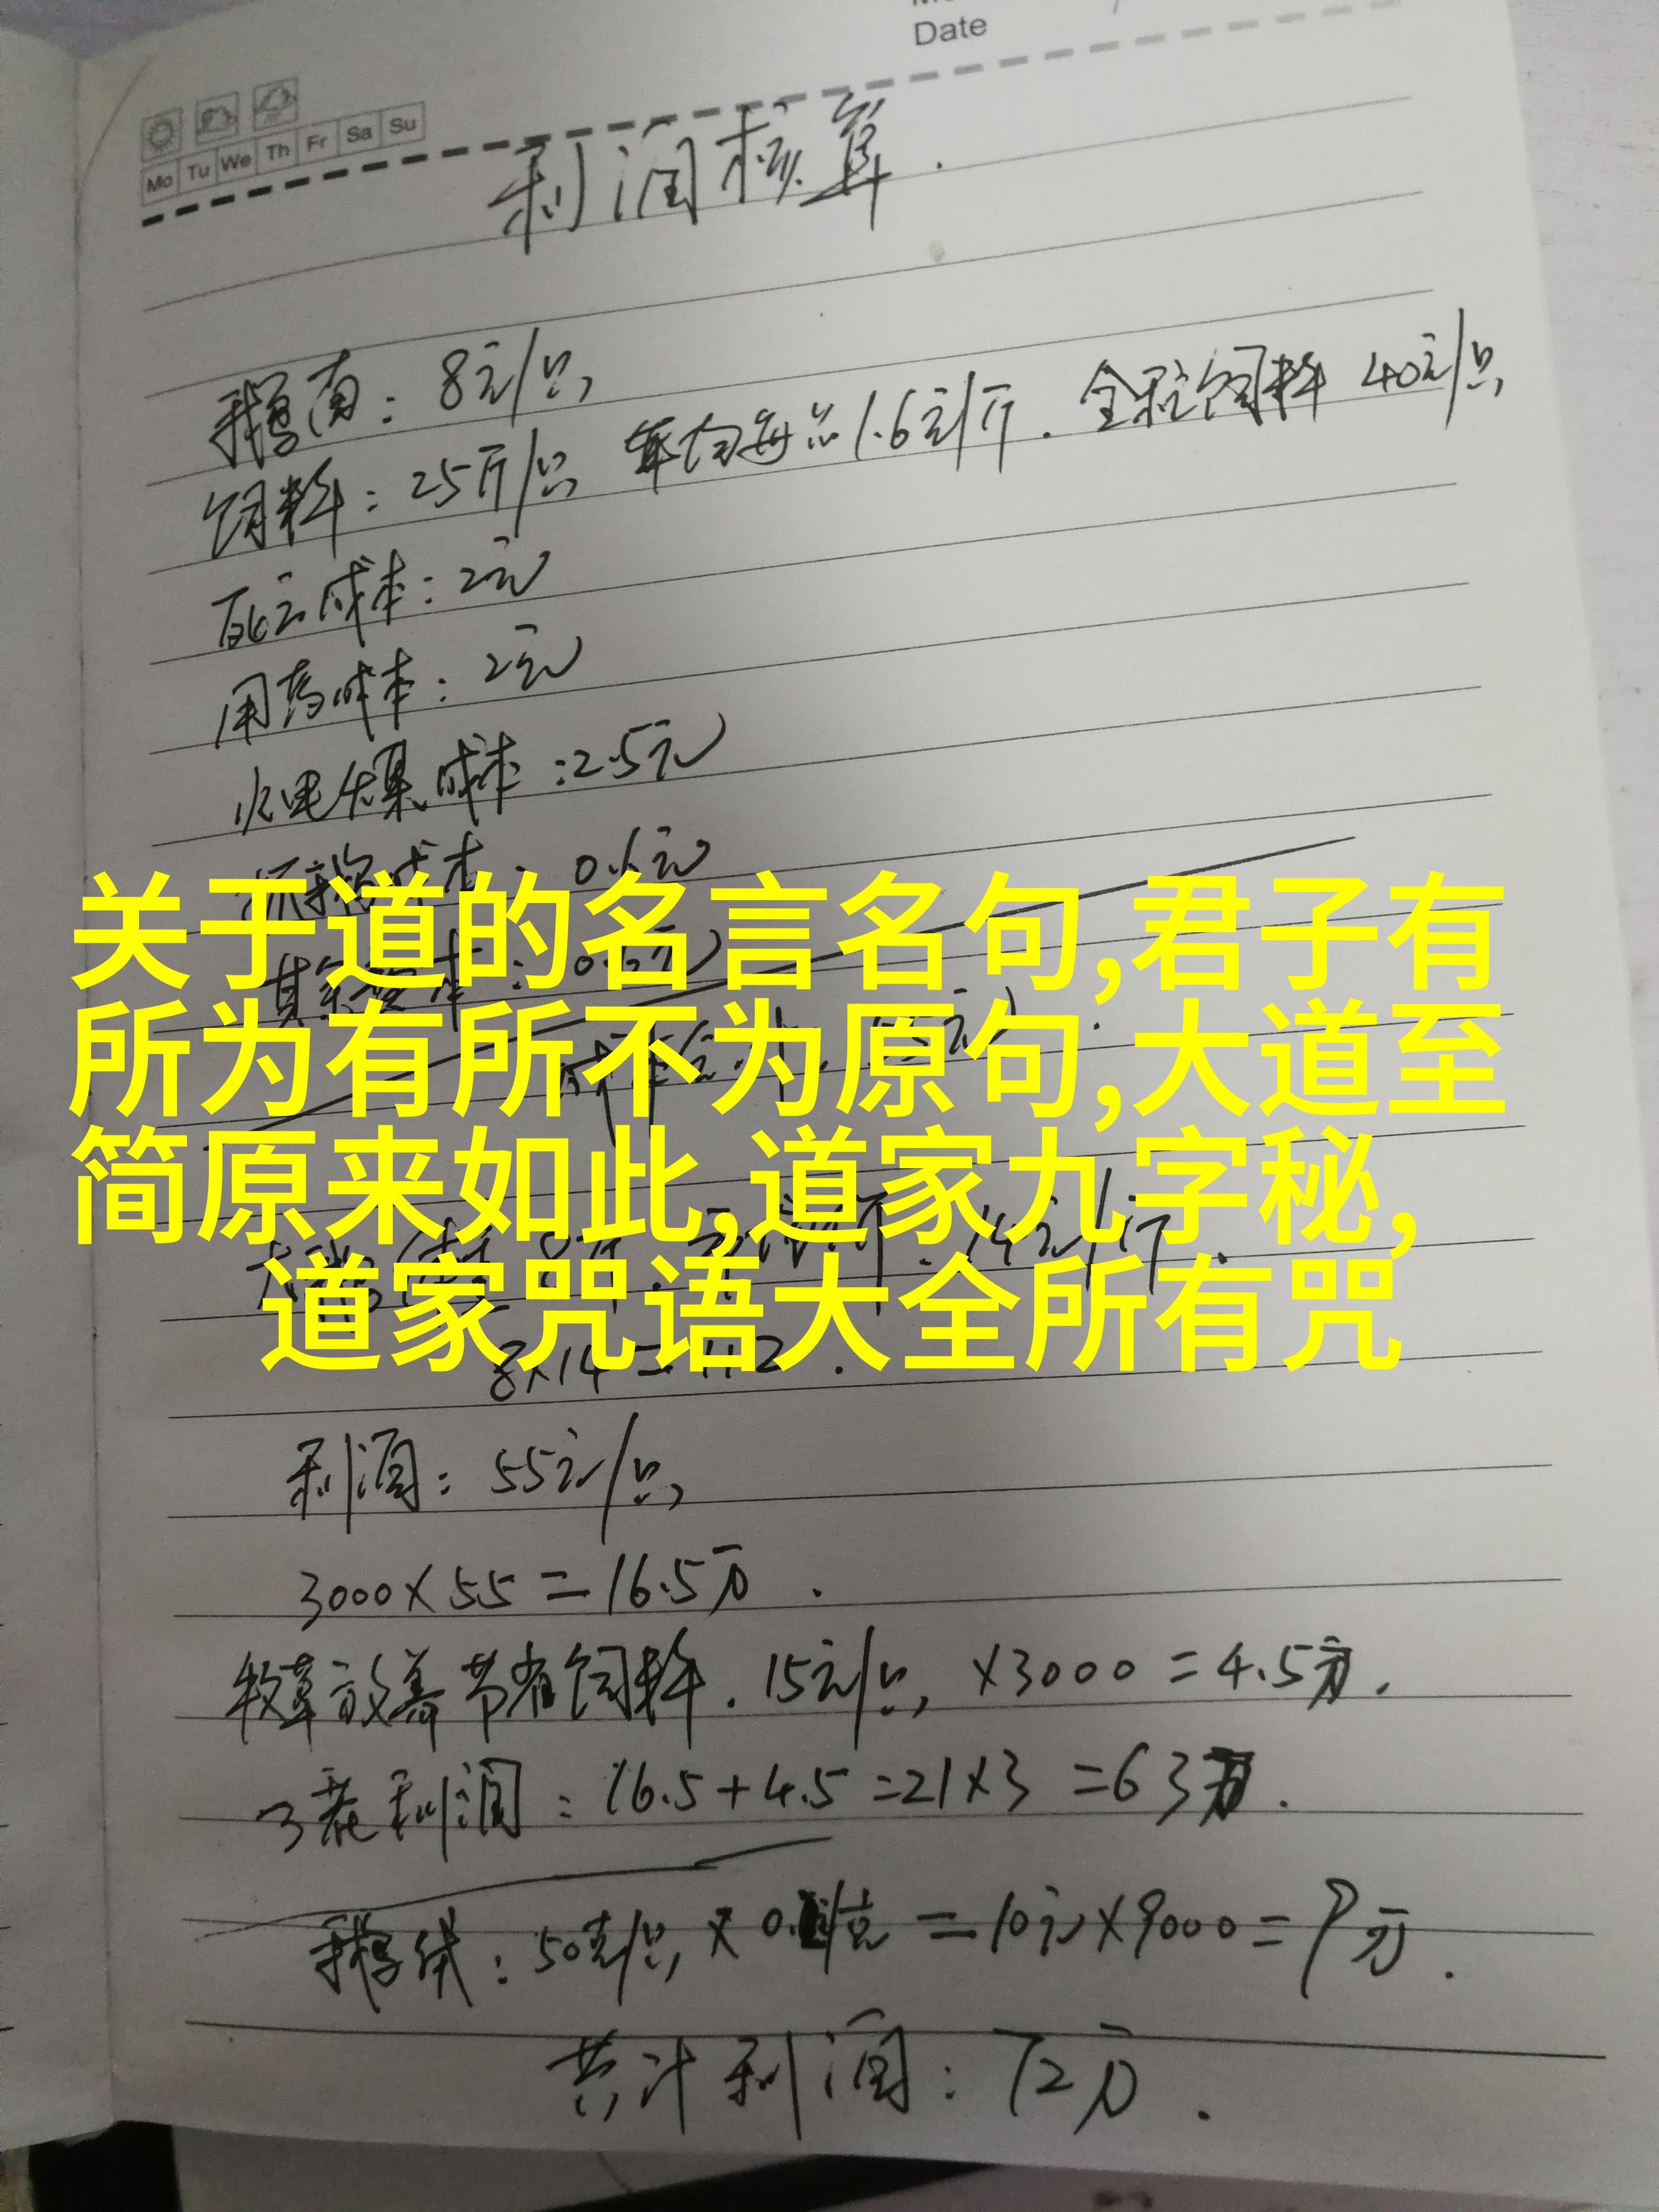 Date
Mo Tu We Th Fr Sa Su
利润核算.
鹅苗: 8元/只,
饲料: 25斤/只, 平均每斤1.6元/斤. 全程饲料 40元/只,
死亡成本: 2元
用药成本: 2元
水电煤成本: 2.5元
关于道的名言名句,君子有
所为有所不为原句,大道至
简原来如此,道家九字秘,
道家咒语大全所有咒
8×14=112.
利润: 55元/只,
3000×55=16.5万.
牧草放养节省饲料. 15元/只, ×3000=4.5万.
3茬利润: 16.5+4.5=21×3=63万.
鹅绒: 50克/只, ×0. /克=10元×9000=9万.
共计利润: 72万.